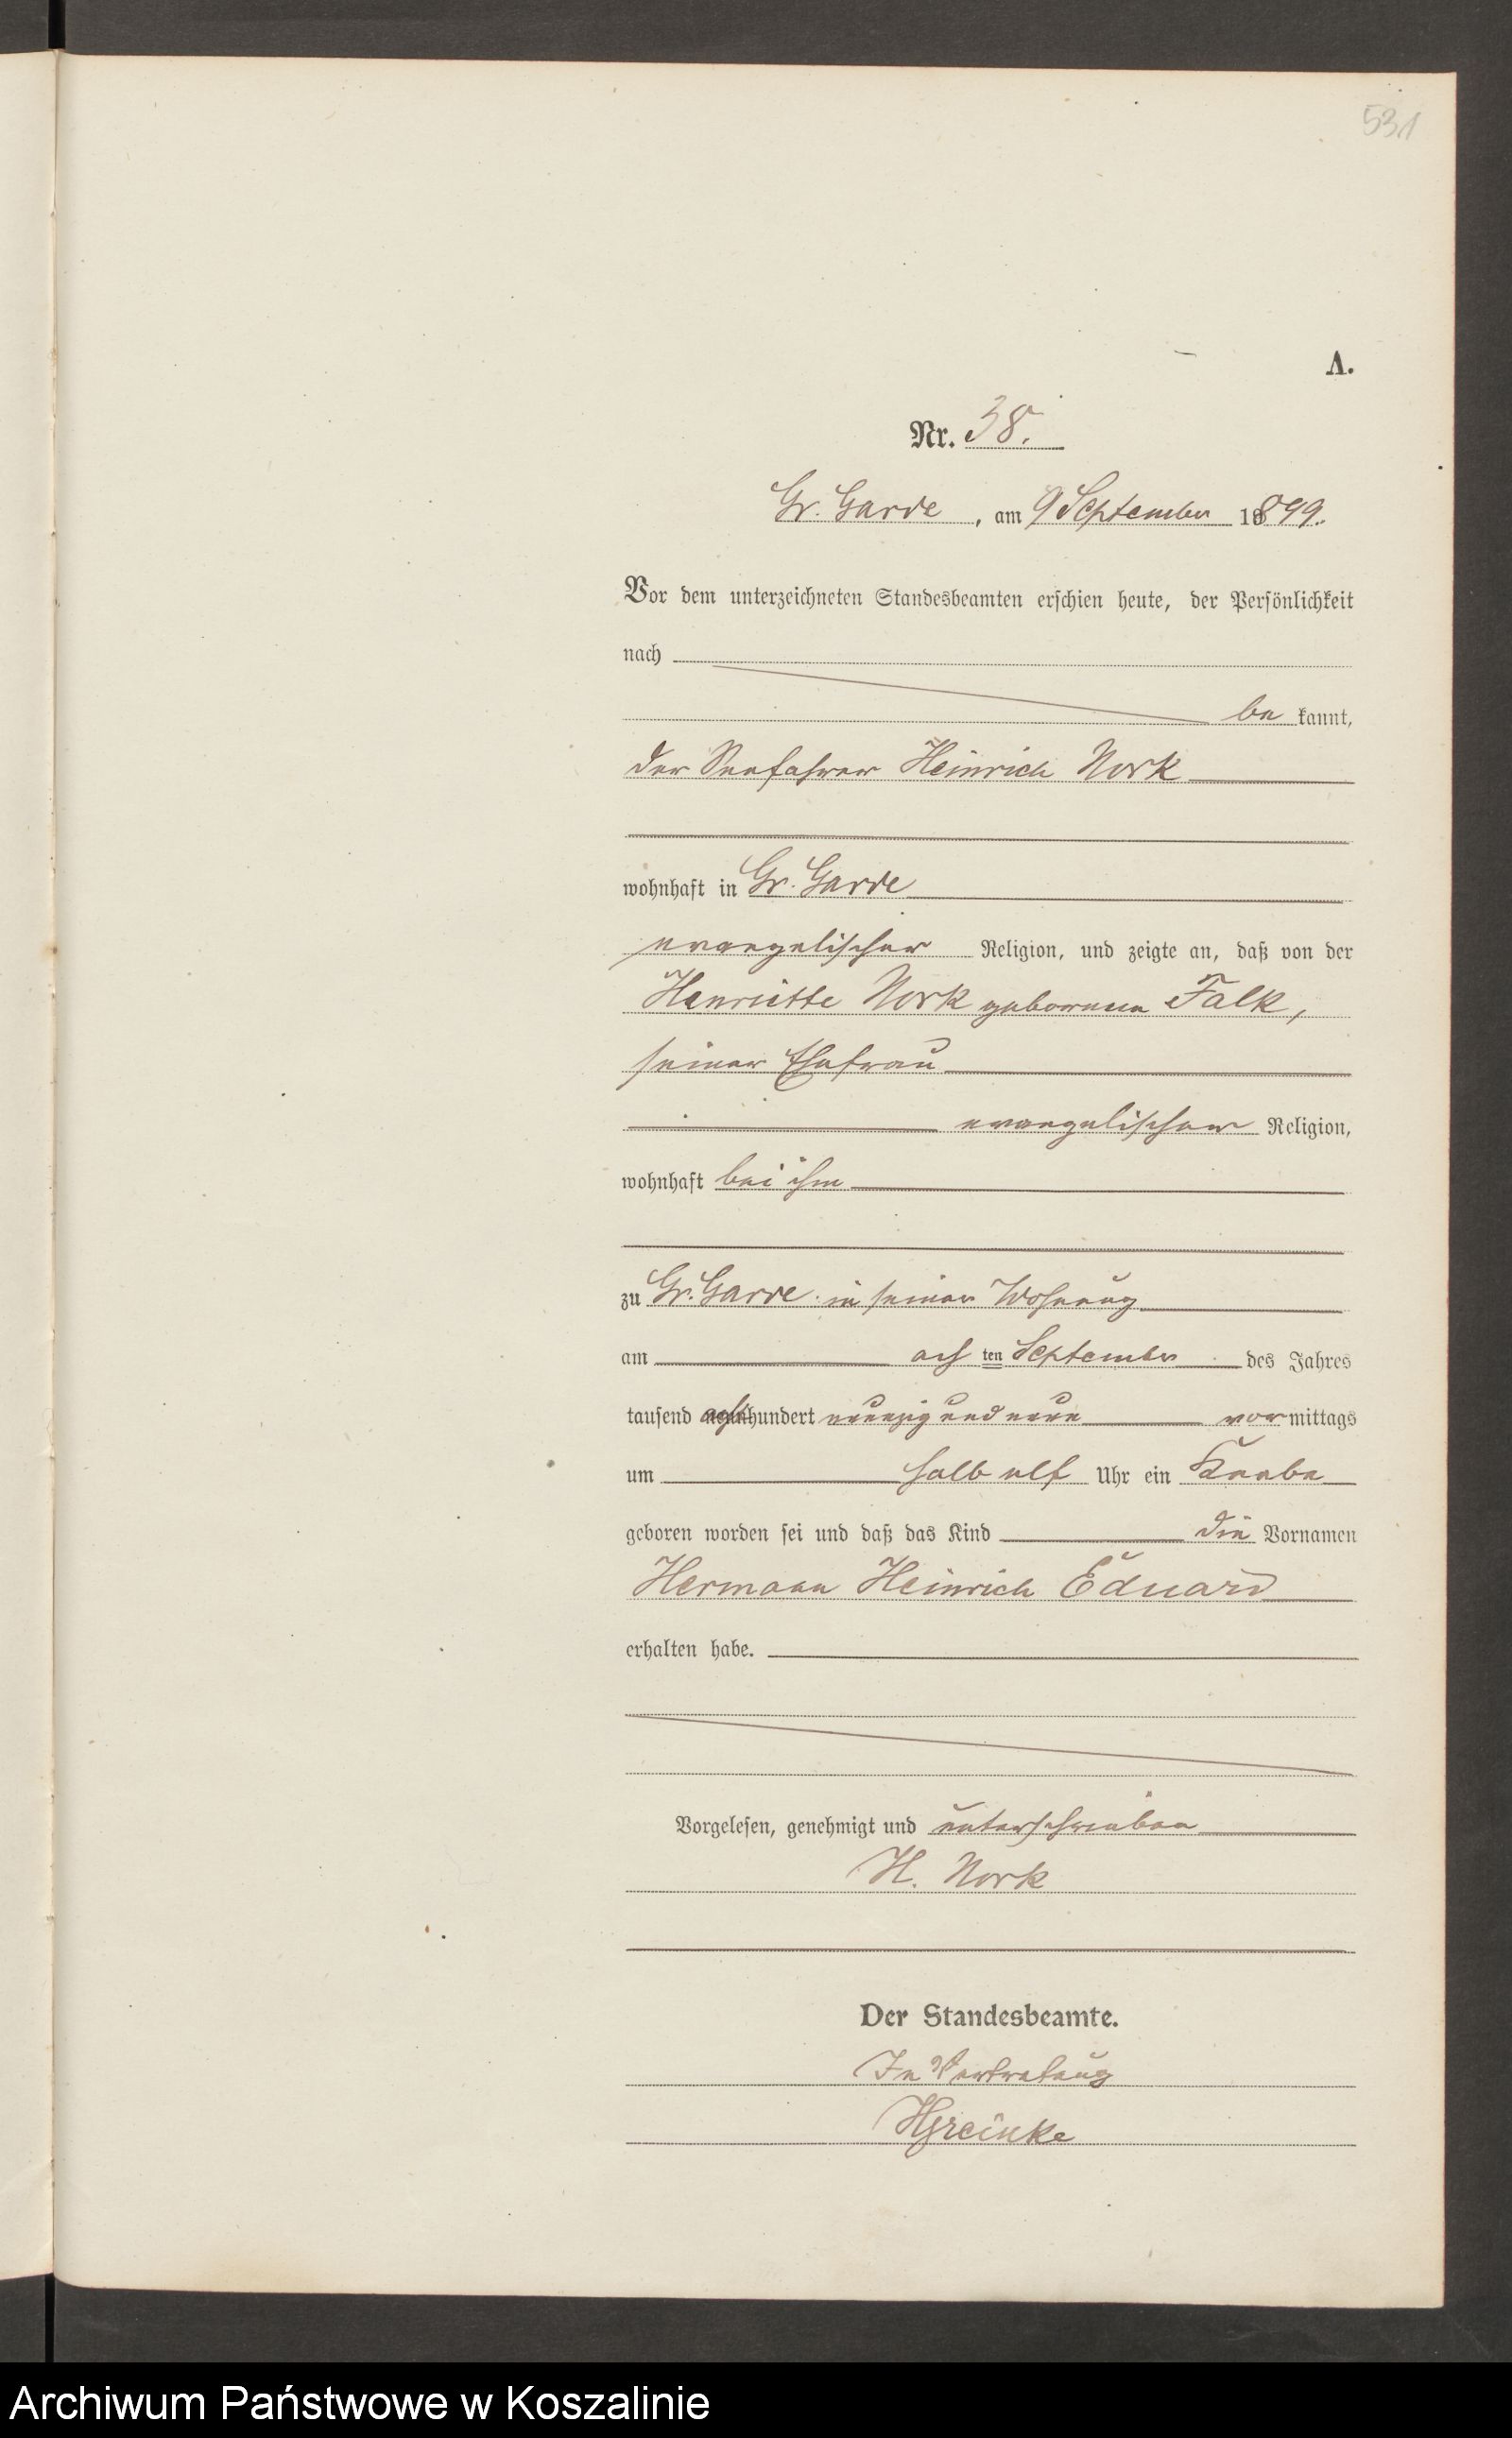 531
A.
Nr. 38.
Gr. Garde, am 9 September 1899.
Vor dem unterzeichneten Standesbeamten erschien heute, der Persönlichkeit
nach
be kannt,
der Seefahrer Heinrich Nork
wohnhaft in Gr. Garde
evangelischer Religion, und zeigte an, daß von der
Henriette Nork geborenen Falk,
seiner Ehefrau
evangelischer Religion,
wohnhaft bei ihm
zu Gr. Garde in seiner Wohnung
am acht ten September des Jahres
tausend achthundert neunzig und neun vor mittags
um halb elf Uhr ein Knabe
geboren worden sei und daß das Kind die Vornamen
Hermann Heinrich Eduard
erhalten habe.
Vorgelesen, genehmigt und unterschrieben
H. Nork
Der Standesbeamte.
In Vertretung